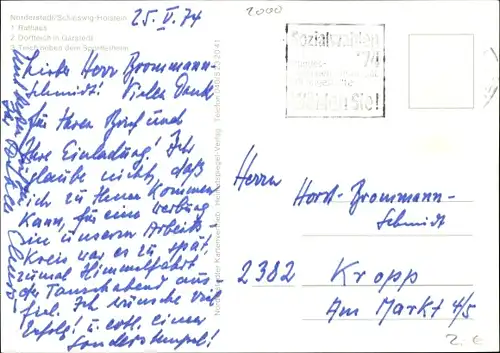 Norderstedt/Schleswig-Holstein
1 Rathaus
2 Dorfteich in Garstedt
3 Teich neben dem Sportlerheim
25. V. 74
2000
Sozialwahlen
'74
Wählen Sie!
Lieber Herr Brommann-
Schmidt! Vielen Dank
für Ihren Brief und
Ihre Einladung! Ich
glaube nicht, daß
ich zu Ihnen kommen
kann, für eine Werbung
in unserem Arbeits-
kreis war es zu spät,
zumal Himmelfahrt
der Tauschabend aus-
fiel. Ich wünsche viel
Erfolg! u. evtl. einen
Sonderstempel!
Herrn
Horst Brommann-
Schmidt
2382 Kropp
Am Markt 4/5
2.€